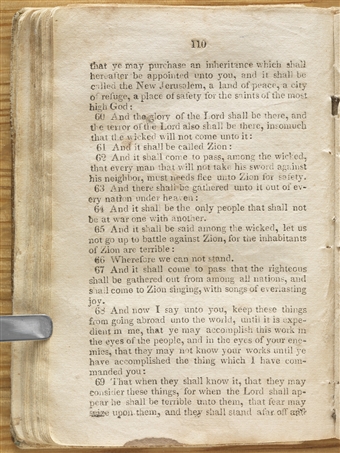 110
that ye may purchase an inheritance which shall
hereafter be appointed unto you, and it shall be
called the New Jerusalem, a land of peace, a city
of refuge, a place of safety for the saints of the most
high God:
60 And the glory of the Lord shall be there, and
the terror of the Lord also shall be there, insomuch
that the wicked will not come unto it:
61 And it shall be called Zion:
62 And it shall come to pass, among the wicked,
that every man that will not take his sword against
his neighbor, must needs flee unto Zion for safety.
63 And there shall be gathered unto it out of ev-
ery nation under heaven:
64 And it shall be the only people that shall not
be at war one with another.
65 And it shall be said among the wicked, let us
not go up to battle against Zion, for the inhabitants
of Zion are terrible:
66 Wherefore we can not stand.
67 And it shall come to pass that the righteous
shall be gathered out from among all nations, and
shall come to Zion singing, with songs of everlasting
joy.
68 And now I say unto you, keep these things
from going abroad unto the world, until it is expe-
dient in me, that ye may accomplish this work in
the eyes of the people, and in the eyes of your ene-
mies, that they may not know your works until ye
have accomplished the thing which I have com-
manded you:
69 That when they shall know it, that they may
consider these things, for when the Lord shall ap-
pear he shall be terrible unto them, that fear may
seize upon them, and they shall stand afar off and